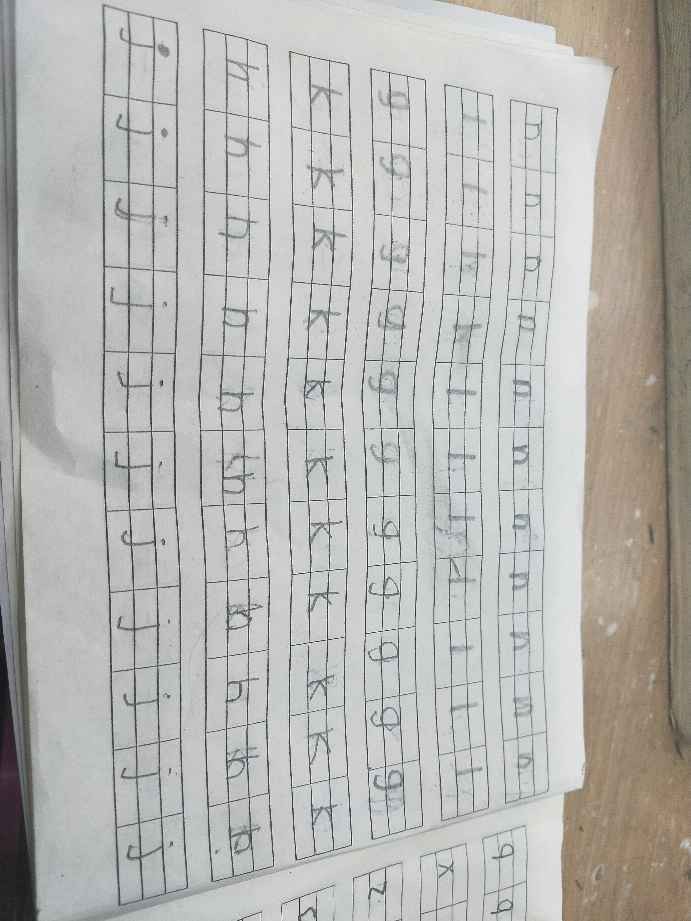 n n n n n n n n n n n
l l l l l l l l l
g g g g g g g g g g g
k k k k k k k k k k k
h h h h h h h h h h h
j j j j j j j j j j j
q q
x
z